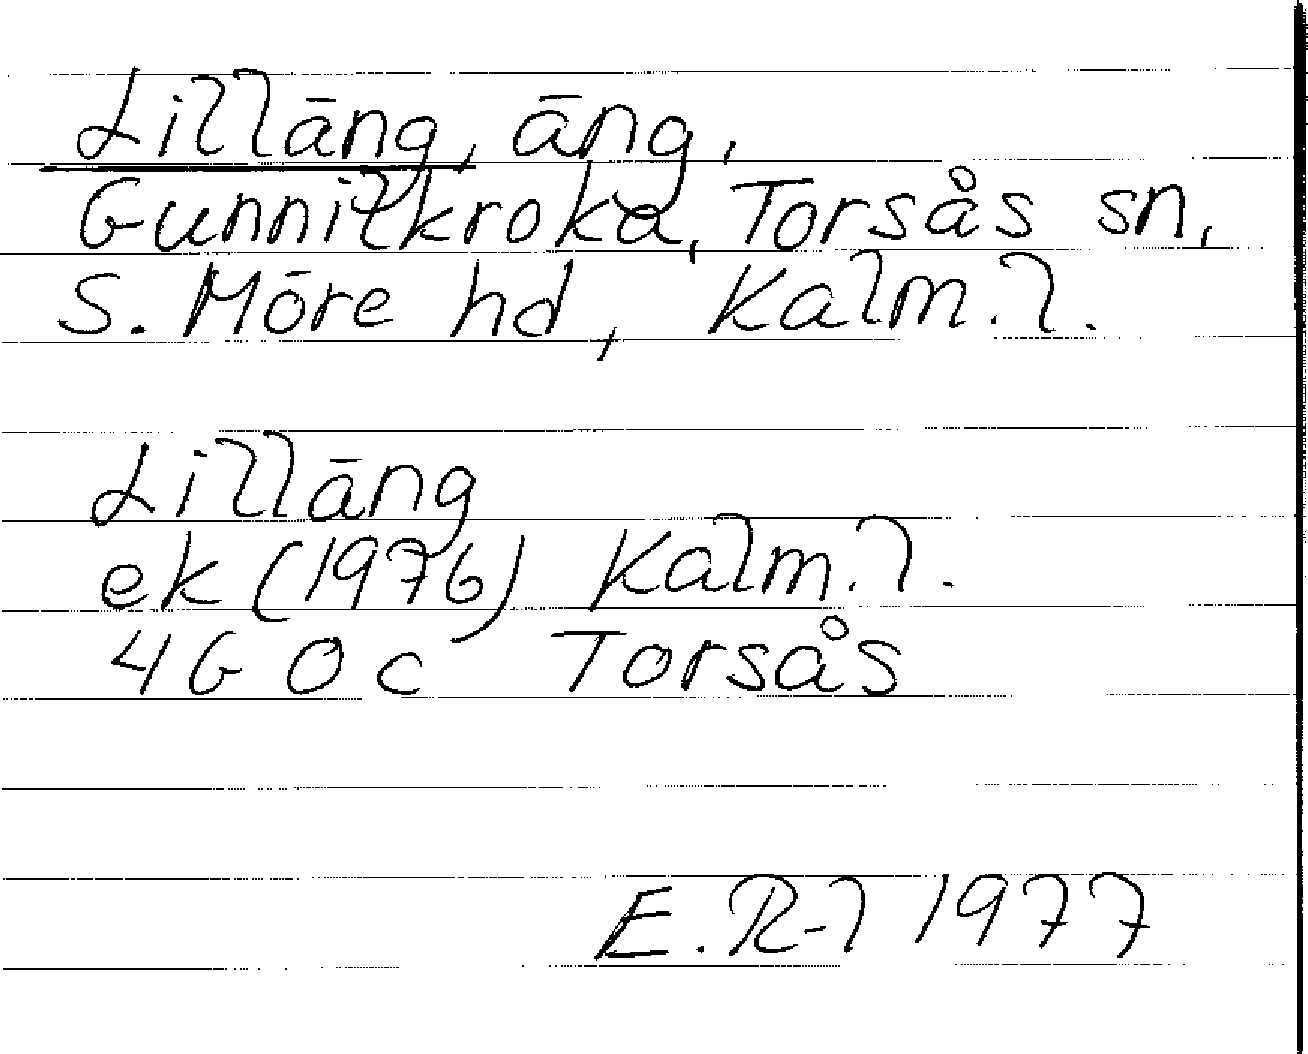 Lilläng, äng,
Gunnilkroka, Torsås sn,
S. Möre hd, Kalm. l.
Lilläng
ek (1976) Kalm. l.
4G 0c Torsås
E. R-l 1977